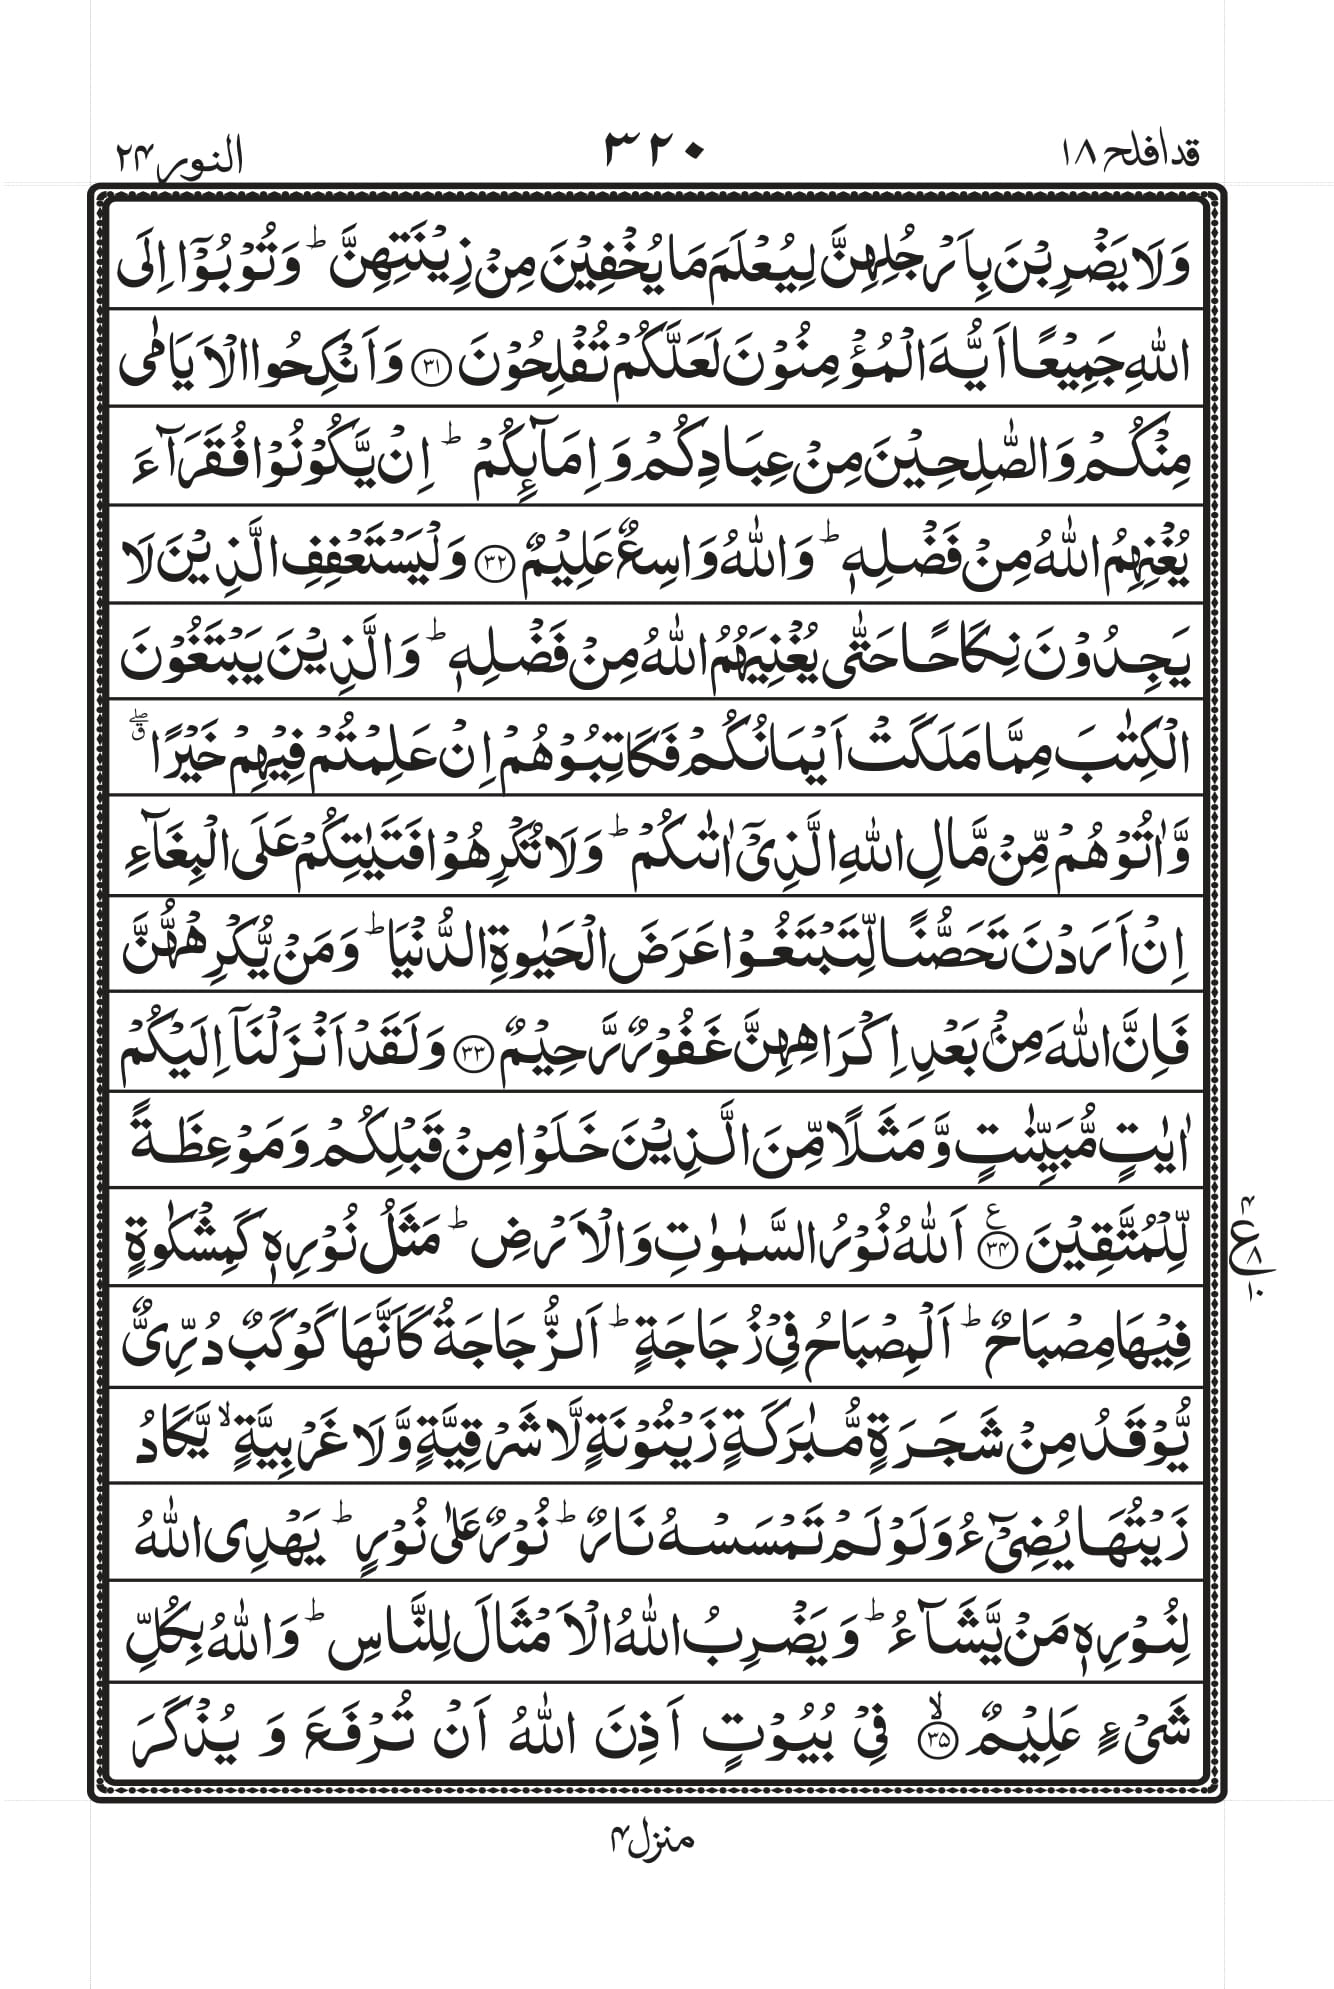 قدافلح ۱۸
۳۲۰
النور ۲۴
وَلَا یَضْرِبْنَ بِاَرْجُلِهِنَّ لِیُعْلَمَ مَا یُخْفِیْنَ مِنْ زِیْنَتِهِنَّ ؕ وَتُوْبُوْۤا اِلَی
اللّٰهِ جَمِیْعًا اَیُّهَ الْمُؤْمِنُوْنَ لَعَلَّكُمْ تُفْلِحُوْنَ ﴿۳۱﴾ وَاَنْكِحُوا الْاَیَامٰی
مِنْكُمْ وَالصّٰلِحِیْنَ مِنْ عِبَادِكُمْ وَ اِمَآىِٕكُمْ ؕ اِنْ یَّكُوْنُوْا فُقَرَآءَ
یُغْنِهِمُ اللّٰهُ مِنْ فَضْلِهٖ ؕ وَاللّٰهُ وَاسِعٌ عَلِیْمٌ ﴿۳۲﴾ وَلْیَسْتَعْفِفِ الَّذِیْنَ لَا
یَجِدُوْنَ نِكَاحًا حَتّٰی یُغْنِیَهُمُ اللّٰهُ مِنْ فَضْلِهٖ ؕ وَالَّذِیْنَ یَبْتَغُوْنَ
الْكِتٰبَ مِمَّا مَلَكَتْ اَیْمَانُكُمْ فَكَاتِبُوْهُمْ اِنْ عَلِمْتُمْ فِیْهِمْ خَیْرًا ۖۗ
وَّاٰتُوْهُمْ مِّنْ مَّالِ اللّٰهِ الَّذِیْۤ اٰتٰىكُمْ ؕ وَلَا تُكْرِهُوْا فَتَیٰتِكُمْ عَلَی الْبِغَآءِ
اِنْ اَرَدْنَ تَحَصُّنًا لِّتَبْتَغُوْا عَرَضَ الْحَیٰوةِ الدُّنْیَا ؕ وَمَنْ یُّكْرِهْهُّنَّ
فَاِنَّ اللّٰهَ مِنْۢ بَعْدِ اِكْرَاهِهِنَّ غَفُوْرٌ رَّحِیْمٌ ﴿۳۳﴾ وَلَقَدْ اَنْزَلْنَاۤ اِلَیْكُمْ
اٰیٰتٍ مُّبَیِّنٰتٍ وَّ مَثَلًا مِّنَ الَّذِیْنَ خَلَوْا مِنْ قَبْلِكُمْ وَ مَوْعِظَةً
لِّلْمُتَّقِیْنَ ﴿۳۴﴾ ع اَللّٰهُ نُوْرُ السَّمٰوٰتِ وَالْاَرْضِ ؕ مَثَلُ نُوْرِهٖ كَمِشْكٰوةٍ
۴ ع ۸ ۱۰
فِیْهَا مِصْبَاحٌ ؕ اَلْمِصْبَاحُ فِیْ زُجَاجَةٍ ؕ اَلزُّجَاجَةُ كَاَنَّهَا كَوْكَبٌ دُرِّیٌّ
یُّوْقَدُ مِنْ شَجَرَةٍ مُّبٰرَكَةٍ زَیْتُوْنَةٍ لَّا شَرْقِیَّةٍ وَّلَا غَرْبِیَّةٍ ۙ یَّكَادُ
زَیْتُهَا یُضِیْٓءُ وَلَوْ لَمْ تَمْسَسْهُ نَارٌ ؕ نُوْرٌ عَلٰی نُوْرٍ ؕ یَهْدِی اللّٰهُ
لِنُوْرِهٖ مَنْ یَّشَآءُ ؕ وَ یَضْرِبُ اللّٰهُ الْاَمْثَالَ لِلنَّاسِ ؕ وَاللّٰهُ بِكُلِّ
شَیْءٍ عَلِیْمٌ ﴿۳۵﴾ ۙ فِیْ بُیُوْتٍ اَذِنَ اللّٰهُ اَنْ تُرْفَعَ وَ یُذْكَرَ
منزل ۴